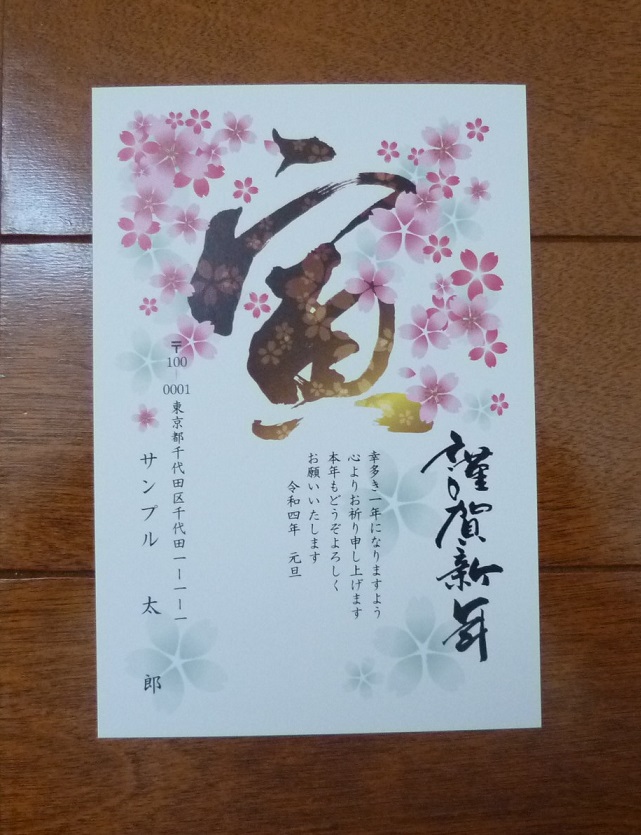 寅
謹賀新年
幸多き一年になりますよう
心よりお祈り申し上げます
本年もどうぞよろしく
お願いいたします
令和四年　元旦
〒100-0001東京都千代田区千代田一ー一ー一
サンプル　太　郎